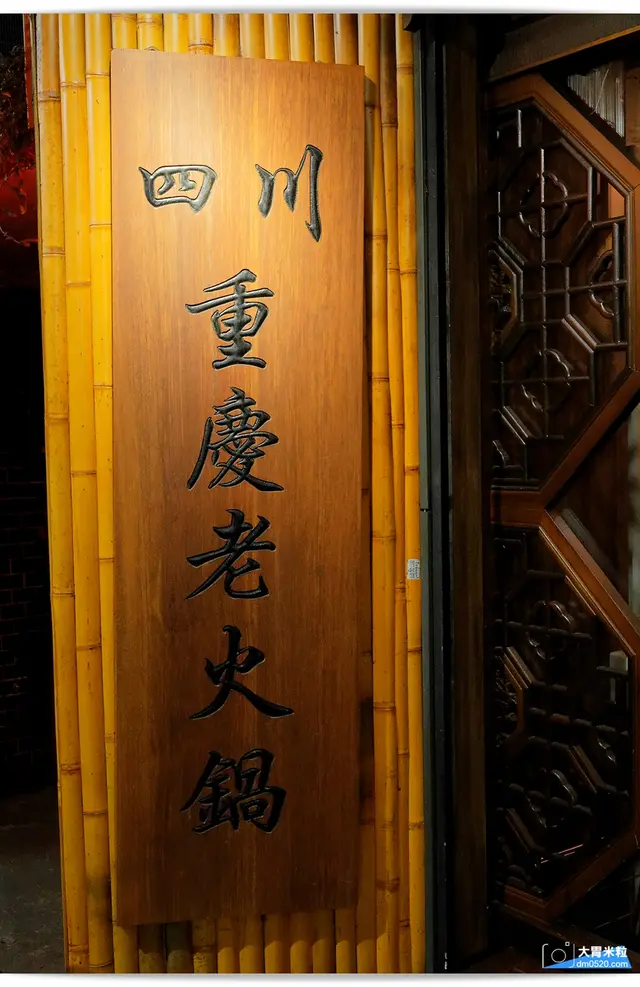 四川
重慶老火鍋
大胃米粒
dm0520.com